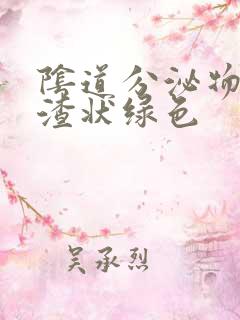 陰道分泌物
渣状绿色
吴承烈